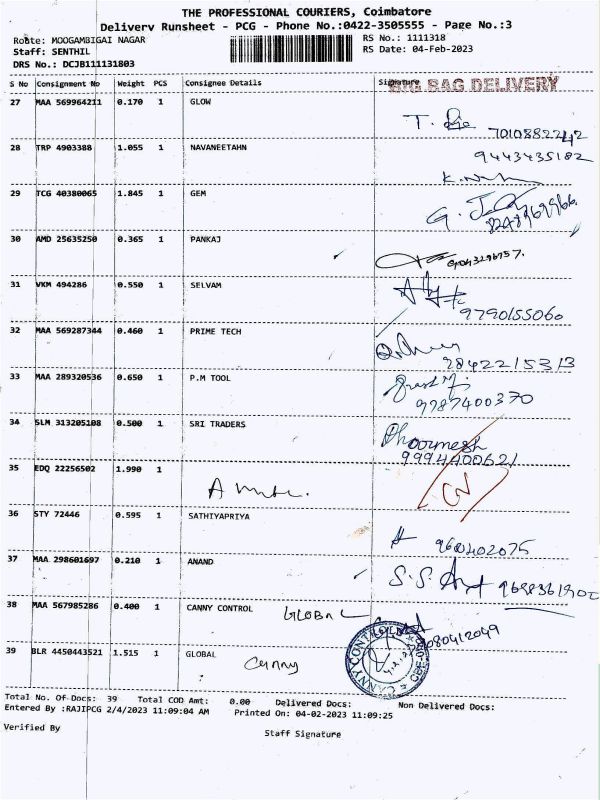 THE PROFESSIONAL COURIERS, Coimbatore
Delivery Runsheet - PCG - Phone No.:0422-3505555 - Page No.:3
Route: MOOGAMBIGAI NAGAR RS No.: 1111318
Staff: SENTHIL RS Date: 04-Feb-2023
DRS No.: DCJB111131803
S No Consignment No Weight PCS Consignee Details Signature
BIG BAG DELIVERY
27 MAA 569964211 0.170 1 GLOW
T.
7010882242
28 TRP 4903388 1.055 1 NAVANEETAHN
9443435182
29 TCG 40380065 1.845 1 GEM
G.
30 AMD 25635250 0.365 1 PANKAJ
31 VKM 494286 0.550 1 SELVAM
9790155060
32 MAA 569287344 0.460 1 PRIME TECH
9842215313
33 MAA 289320536 0.650 1 P.M TOOL
9787400370
34 SLM 313205108 0.500 1 SRI TRADERS
Dhoormesh
9994400621
35 EDQ 22256502 1.990 1
36 STY 72446 0.595 1 SATHIYAPRIYA
9600402075
37 MAA 298601697 0.210 1 ANAND
S.S.
38 MAA 567985286 0.400 1 CANNY CONTROL GLOBAL
8080412049
39 BLR 4450443521 1.515 1 GLOBAL Canny
CANNY CONTROLS
Total No. Of Docs: 39 Total COD Amt: 0.00 Delivered Docs: Non Delivered Docs:
Entered By :RAJIPCG 2/4/2023 11:09:04 AM Printed On: 04-02-2023 11:09:25
Verified By Staff Signature